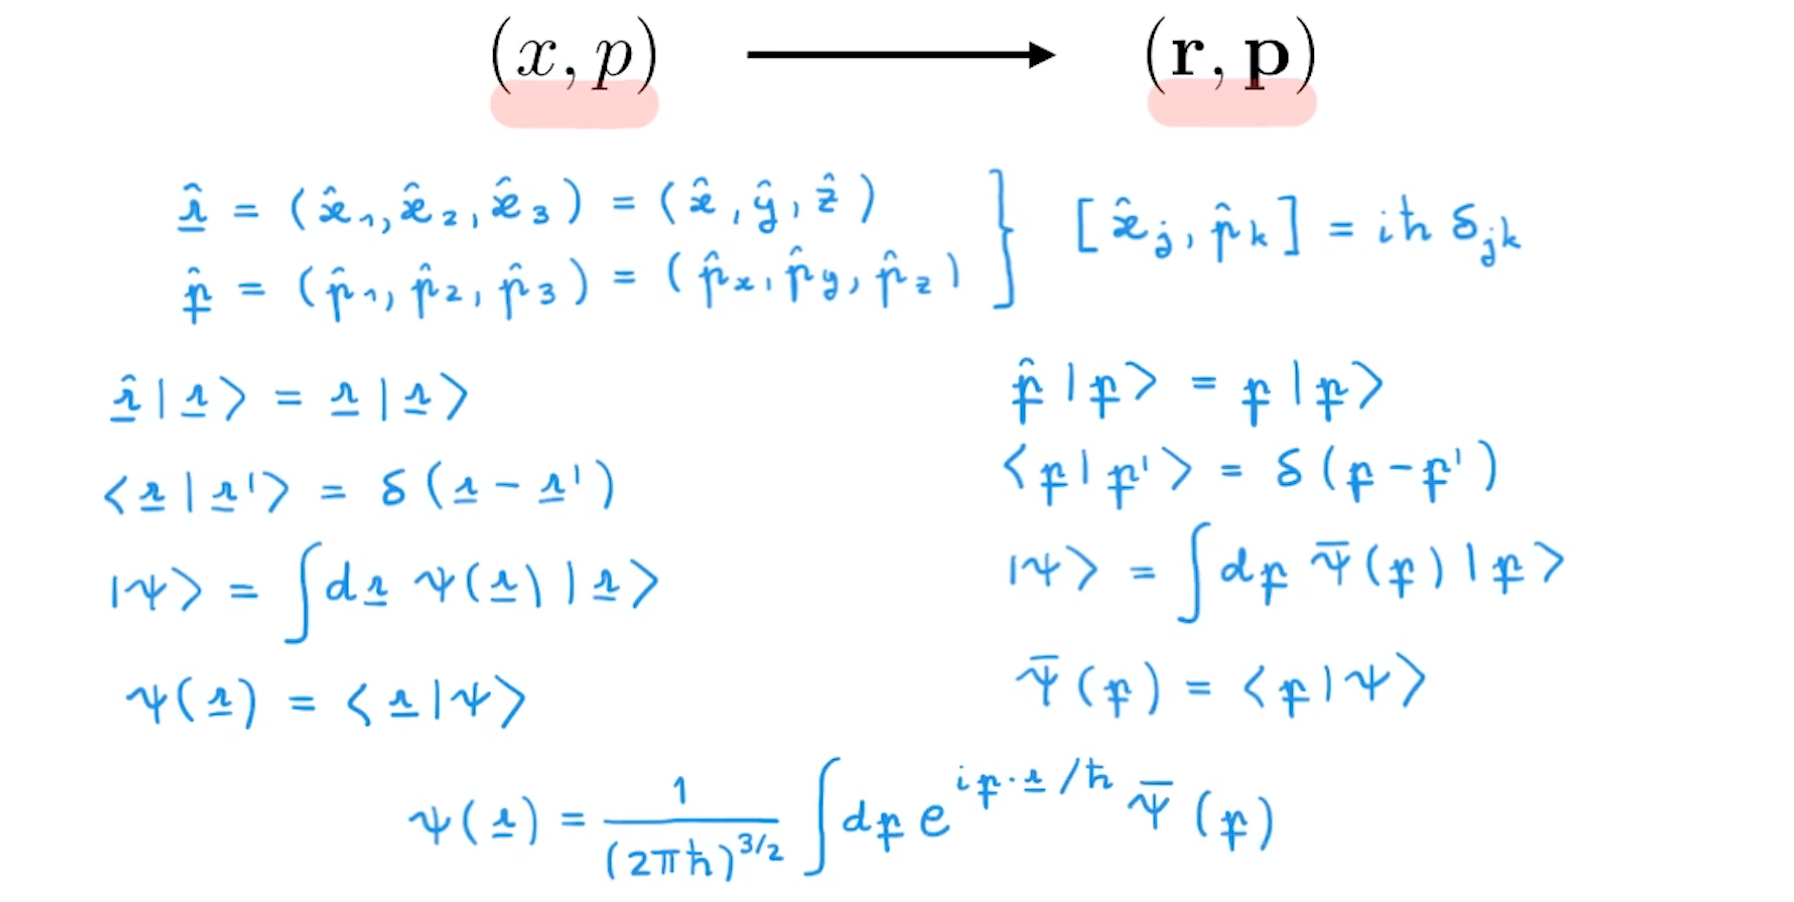 (x, p) ⟶ (𝐫, 𝐩)
r̲̂ = (x̂₁, x̂₂, x̂₃) = (x̂, ŷ, ẑ)
p̲̂ = (p̂₁, p̂₂, p̂₃) = (p̂ₓ, p̂_y, p̂_z) } [x̂_j, p̂_k] = iħ δ_jk
r̲̂ |r̲⟩ = r̲ |r̲⟩
⟨r̲|r̲'⟩ = δ(r̲ − r̲')
|ψ⟩ = ∫ dr̲ ψ(r̲) |r̲⟩
ψ(r̲) = ⟨r̲|ψ⟩
p̲̂ |p̲⟩ = p̲ |p̲⟩
⟨p̲|p̲'⟩ = δ(p̲ − p̲')
|ψ⟩ = ∫ dp̲ ψ̄(p̲) |p̲⟩
ψ̄(p̲) = ⟨p̲|ψ⟩
ψ(r̲) = 1/(2πħ)^{3/2} ∫ dp̲ e^{i p̲·r̲/ħ} ψ̄(p̲)